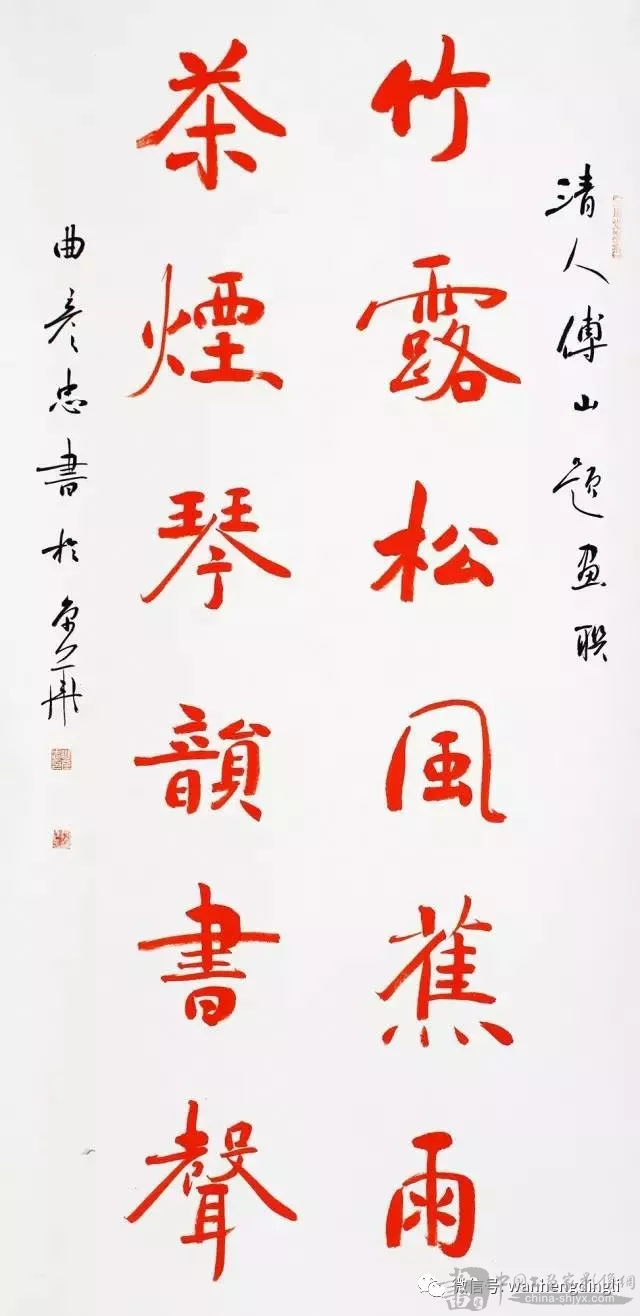 清人傅山题画联
竹露松風蕉雨
茶煙琴韻書聲
曲彦忠書於京華
微信号: wanhengdingli
china-shjyx.com